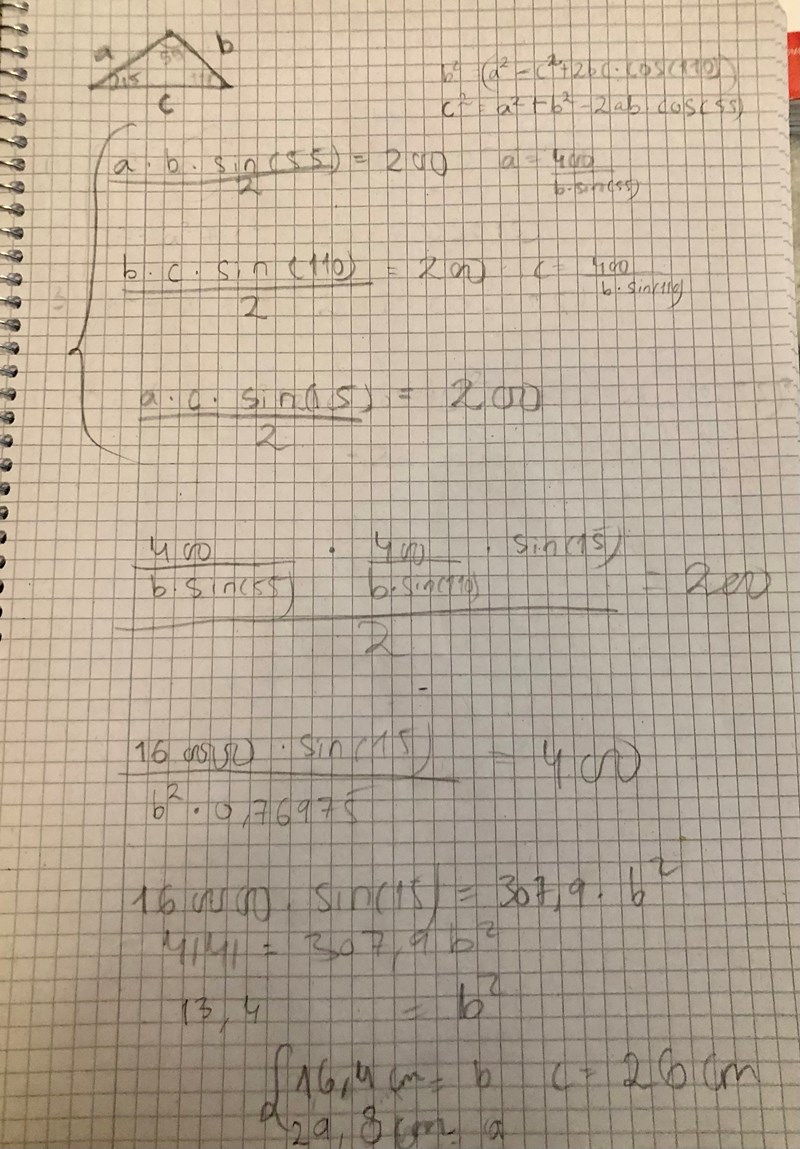 a b
55
15 110
c
b² (a² = c² + 2bc · cos(110))
c² = a² + b² - 2ab cos(55)
a · b · sin(55) / 2 = 200 a = 400 / b·sin(55)
b · c · sin(110) / 2 = 200 c = 400 / b·sin(110)
a · c · sin(15) / 2 = 200
400 / b·sin(55) · 400 / b·sin(110) · sin(15) / 2 = 200
160000 · sin(15) / b² · 0,76975 = 400
160000 · sin(15) = 307,9 · b²
4141 = 307,9 b²
13,4 = b²
16,4 cm = b c = 26 cm
29,8 cm = a